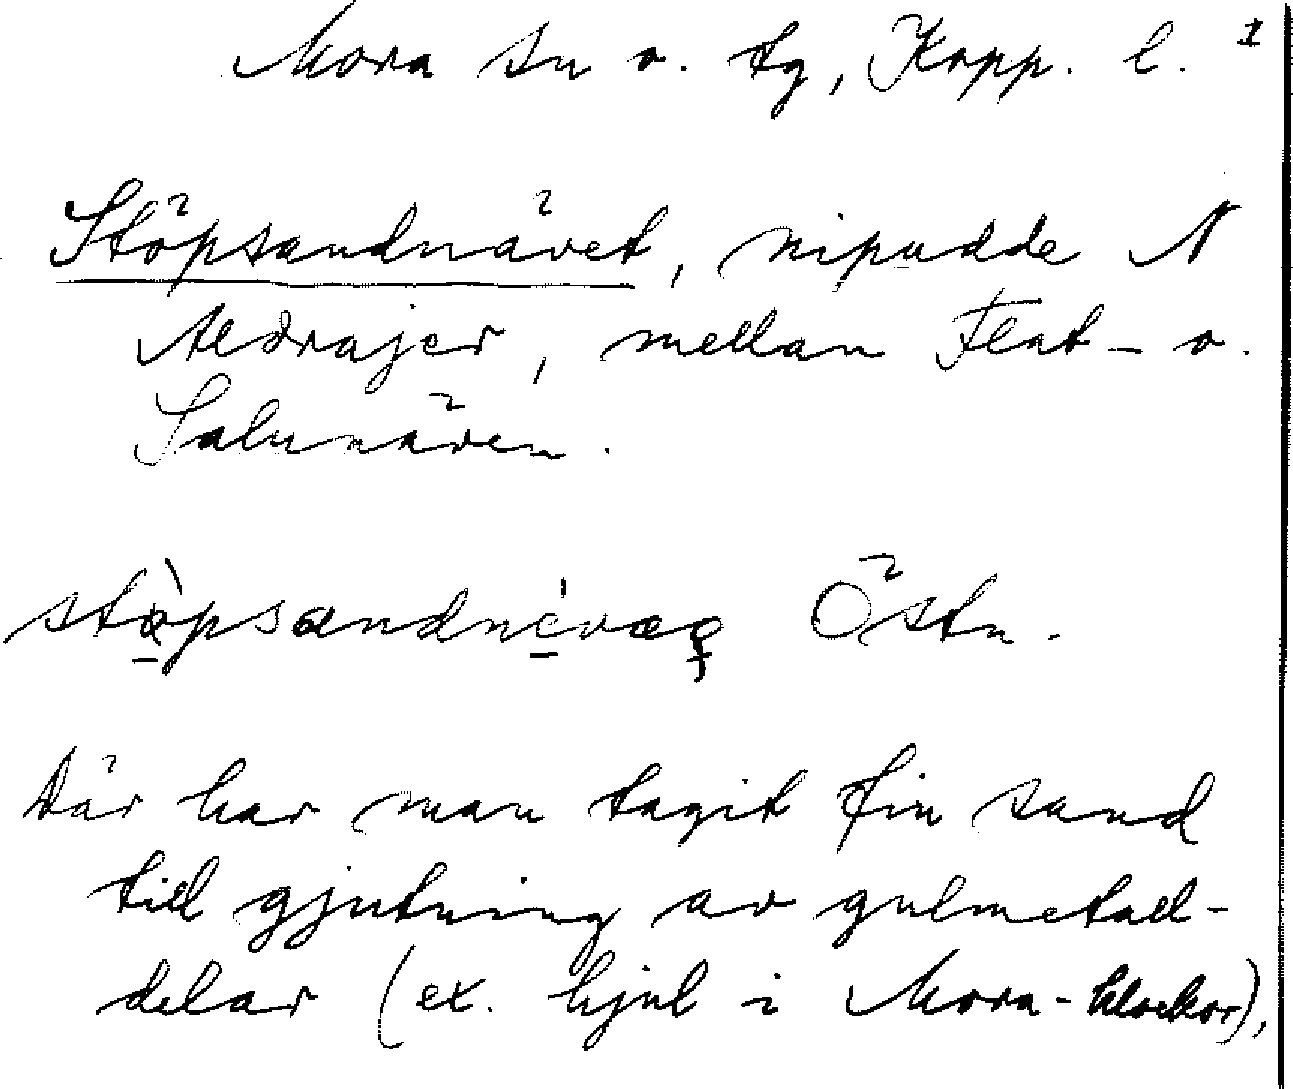 Mora sn o. tg, Kopp. l. 1
Stöpsandnävet, nipudde N
Aldrajer, mellan Flat- o.
Salunäven.
stöpsandnevæ Östn.
Där har man tagit fin sand
till gjutning av gulmetall-
delar (ex. hjul i Mora-klockor),